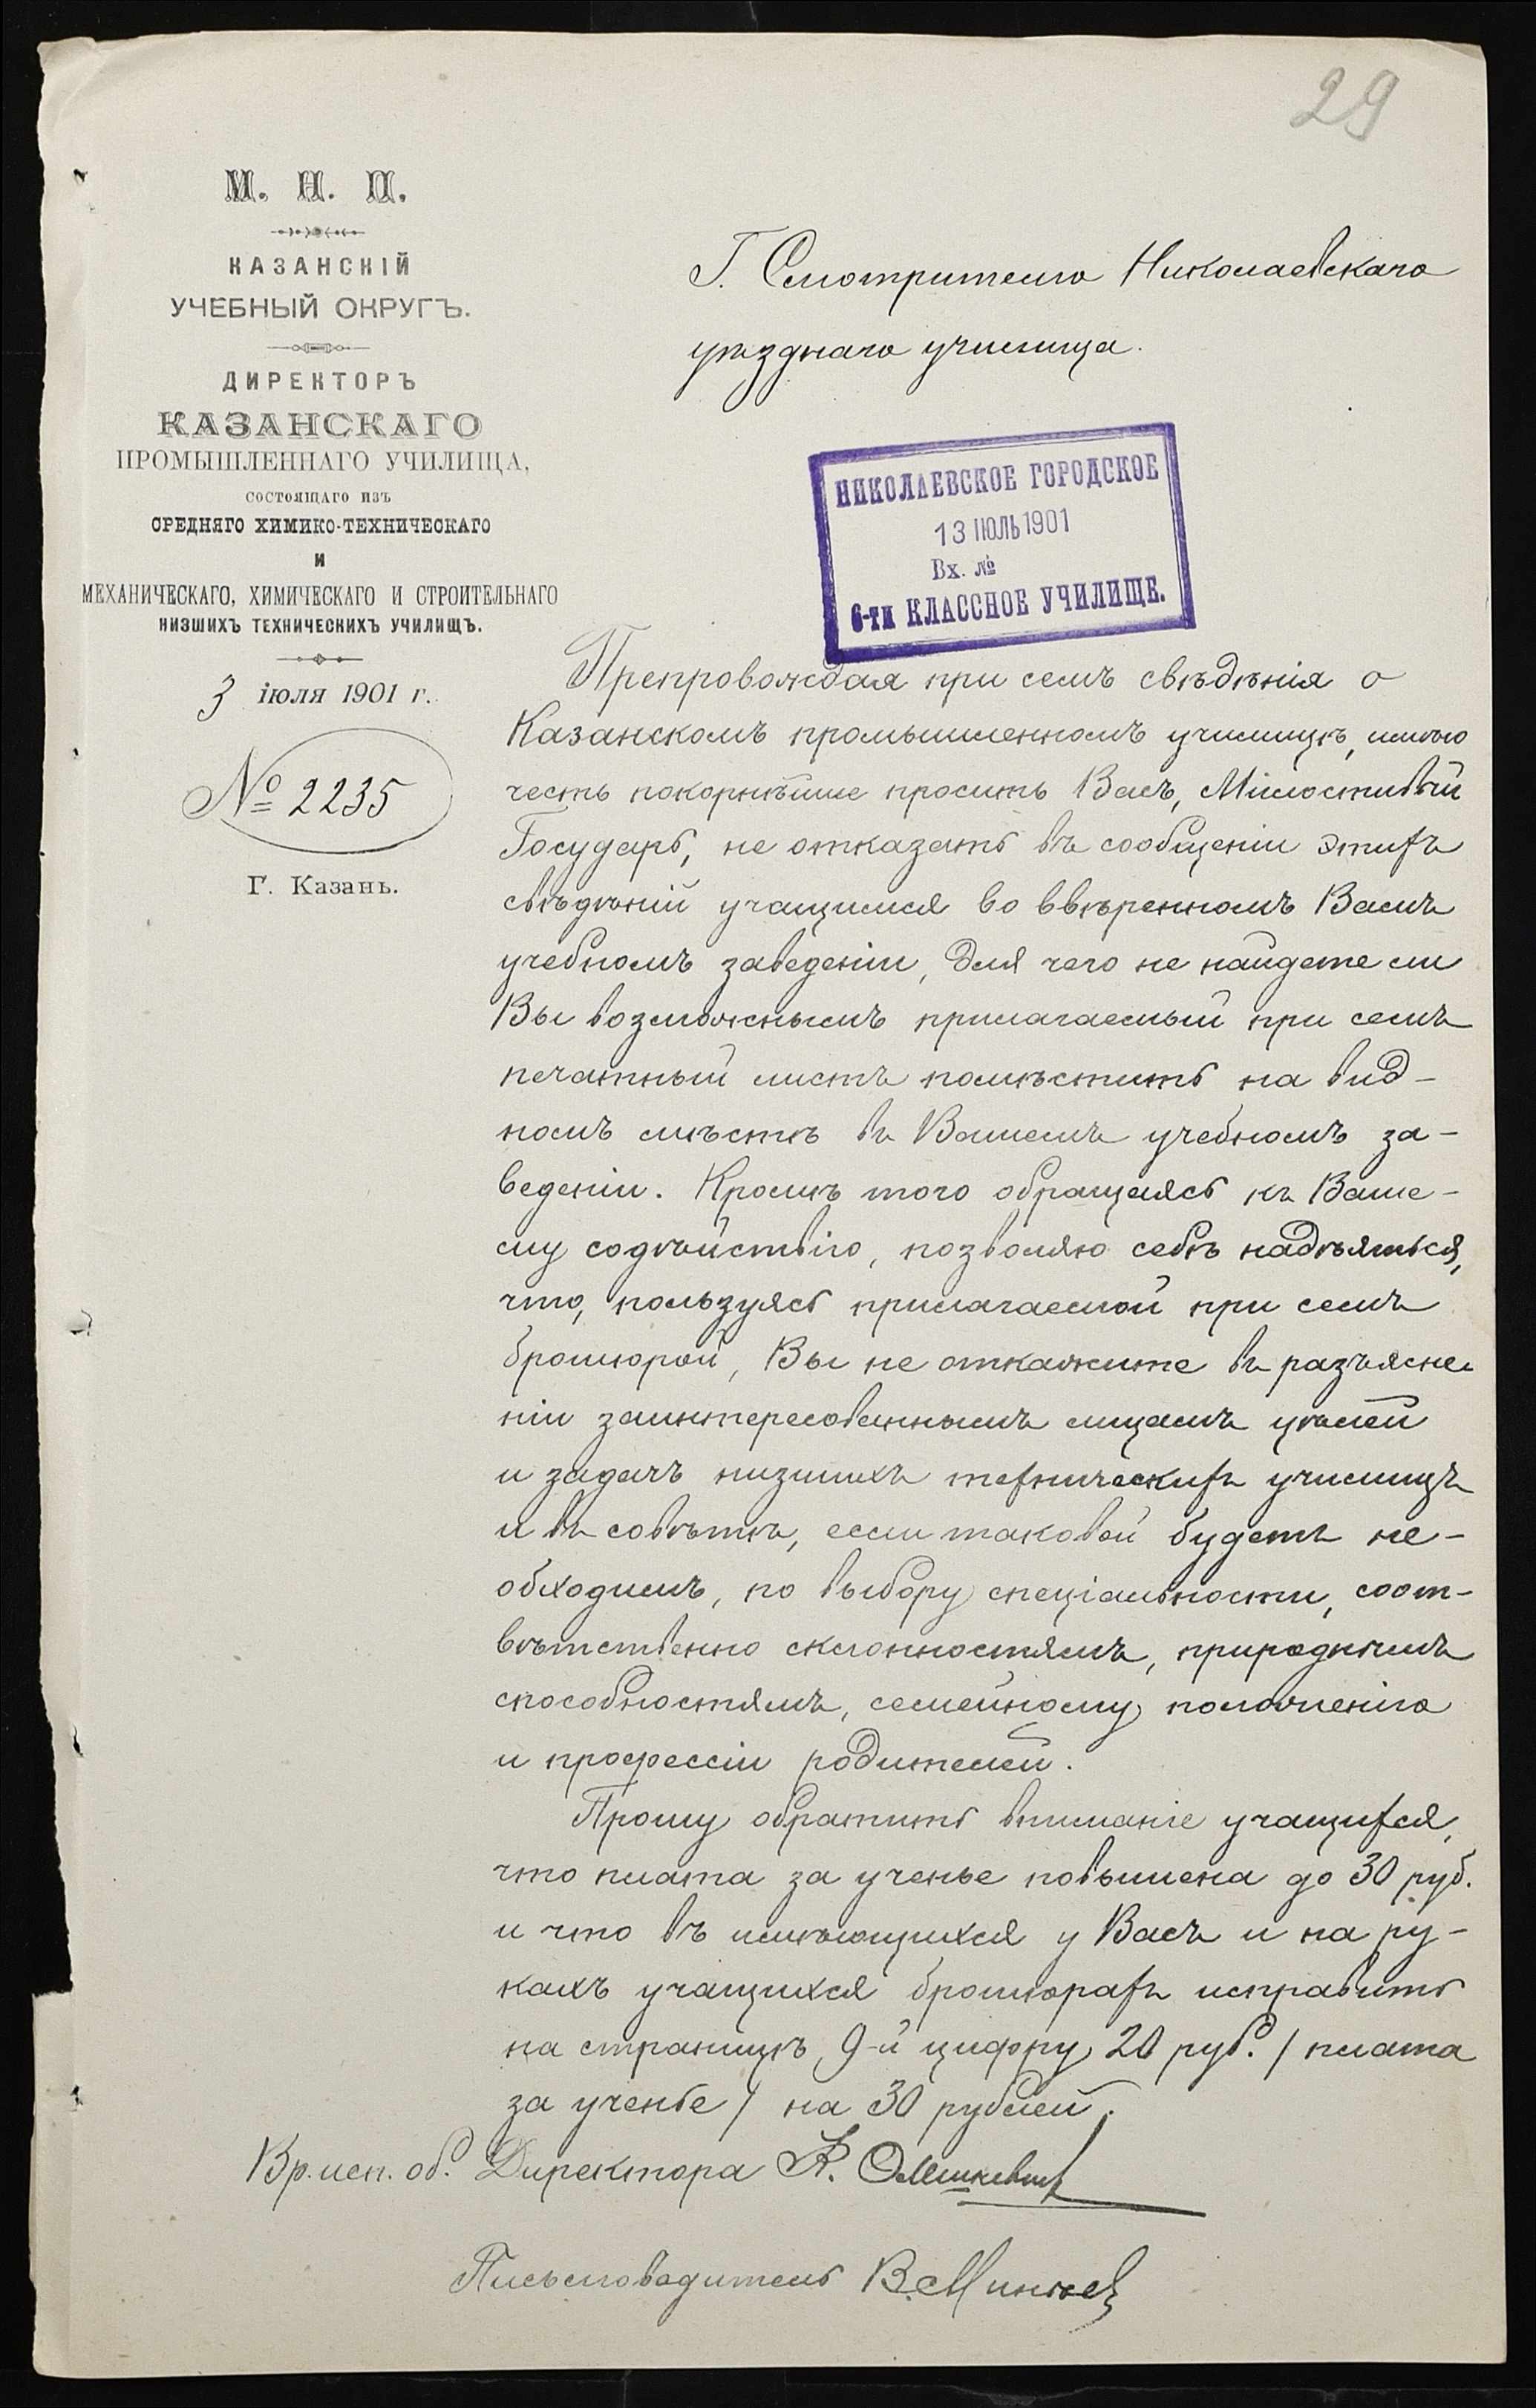 29
М. Н. П.
КАЗАНСКІЙ
УЧЕБНЫЙ ОКРУГЪ.
ДИРЕКТОРЪ
КАЗАНСКАГО
ПРОМЫШЛЕННАГО УЧИЛИЩА,
СОСТОЯЩАГО ИЗЪ
СРЕДНЯГО ХИМИКО-ТЕХНИЧЕСКАГО
И
МЕХАНИЧЕСКАГО, ХИМИЧЕСКАГО И СТРОИТЕЛЬНАГО
НИЗШИХЪ ТЕХНИЧЕСКИХЪ УЧИЛИЩЪ.
3 іюля 1901 г.
№ 2235
Г. Казань.
Г. Смотрителю Николаевскаго
уѣзднаго училища.
НИКОЛАЕВСКОЕ ГОРОДСКОЕ
13 ІЮЛЬ 1901
Вх. №
6-ти КЛАССНОЕ УЧИЛИЩЕ.
Препровождая при семъ свѣдѣнія о
Казанскомъ промышленномъ училищѣ, имѣю
честь покорнѣйше просить Васъ, Милостивый
Государь, не отказать въ сообщеніи этихъ
свѣдѣній учащимся во ввѣренномъ Вамъ
учебномъ заведеніи, для чего не найдете ли
Вы возможнымъ прилагаемый при семъ
печатный листъ помѣстить на вид-
номъ мѣстѣ въ Вашемъ учебномъ за-
веденіи. Кромѣ того обращаясь къ Ваше-
му содѣйствію, позволяю себѣ надѣяться,
что, пользуясь прилагаемой при семъ
брошюрой, Вы не откажите въ разъясне
ніи заинтересованнымъ лицамъ цѣлей
и задачъ низшихъ техническихъ училищъ
и въ совѣтѣ, если таковой будетъ не-
обходимъ, по выбору спеціальности, соот-
вѣтственно склонностямъ, природнымъ
способностямъ, семейному положенію
и професcіи родителей.
Прошу обратить вниманіе учащихся,
что плата за ученье повышена до 30 руб.
и что въ имѣющихся у Васъ и на ру-
кахъ учащихся брошюрахъ исправить
на страницѣ 9-й цифру 20 руб. / плата
за ученье / на 30 рублей.
Вр. исп. об. Директора К.
Письмоводитель В.